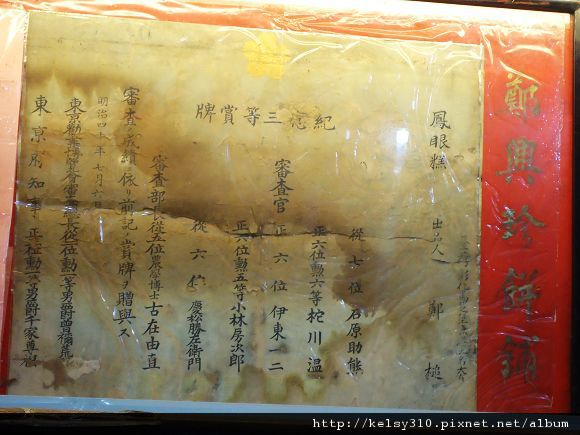 鄭興珍餅鋪
鳳眼糕
出品人 鄭 槌
紀念三等賞牌
審査官
從七位 石原助熊
正六位勲六等 柁川温
正六位 伊東一二
正六位勲五等 小林房次郎
從六位 慶松勝左衛門
審査部長從五位農學博士 古在由直
審査ノ成績ニ依リ前記ノ賞牌ヲ贈與ス
明治四十年七月六日
東京勧業博覧会審査長從二位勲一等男爵曽禰荒助
東京府知事正三位勲二等男爵千家尊福
http://kelsy310.pixnet.net/album